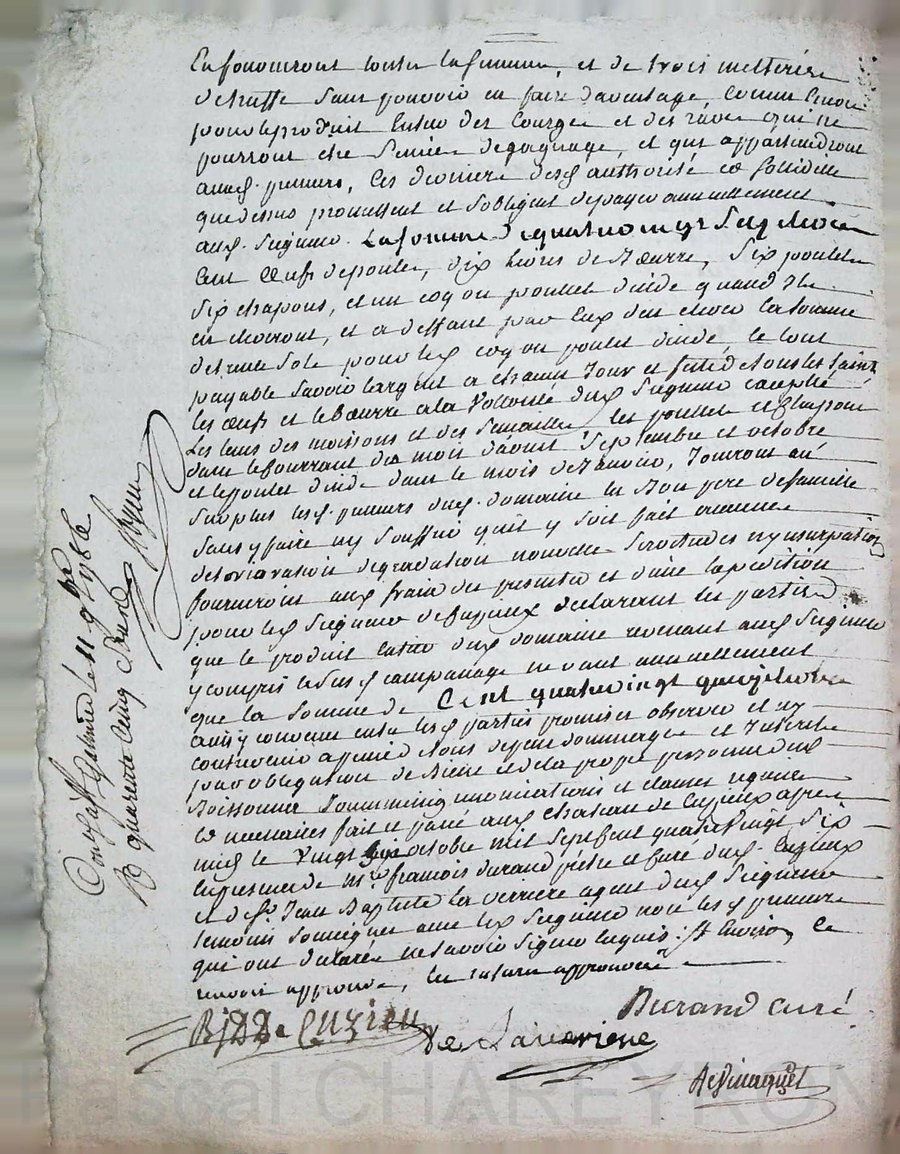 en fourniront toute la semence, et de trois metterée
de truffe sans pouvoir en faire davantage, comme encore
pour le produit entier des courges et des raves qui ne
pourront etre semée de gagnage, et qui appartiendront
auxd. premiers, ces derniers desd authorité et solidité
que dessus promettent et s'obligent de payer annuellement
aud. seigneur. La somme de quatre vingt seize livres
cent œufs de poules, dix livres de beurre, six poulets
six chapons, et un coq ou poulet dinde quand ils
en auront, et a deffaut par eux d'en avoir la somme
de trente sols pour led coq ou poulet dinde, le tout
payable savoir largent a chaque jour et fete de tous les saints
les œufs et le beurre a la vollonté dud seigneur excepté
les tems des moissons et des semailles, les poulets et chapons
dans le courrant des mois daoust septembre et octobre
et le poulet dinde dans le mois de janvier, jouiront au
surplus lesd. preneurs dud. domaine en bon pere de famille
sans y faire ny souffrir qu'il y soit fait aucune
deterioration degradation nouvelles servitudes ny usurpation
fourniront aux frais des presentes et d'une expedition
pour led seigneur de Cuzieux declarant les parties
que le produit entier dud domaine revenant aud seigneur
y compris led susd campanage ne vaut annuellement
que la somme de Cent quatre vingt quinze livres
ainsy convenu entre lesd parties promis observer et ny
contrevenir a peine de tous depens dommages et interets
pour obligation de biens et de la propre personne dud
Boissonna soumissions renonciations et clauses requises
et necessaires fait et passé aud chateau de Cuzieux apres
midy le vingt six octobre mil sept cent quatre vingt six
en presence de mre françois durand pretre et curé dud. Cuzieux
et de sr. Jean Baptiste la verriere agent dud seigneur
temoins soussignés avec led seigneur non lesd preneurs
qui ont declarés ne savoir signer enquis
renvoi approuvé, la rature approuvée
BJDD de Cuzieu
Durand curé
De Laverriere
Controllé le 11 9bre 1786
R quarante cinq
Pascal CHAREYRON